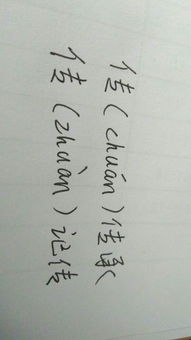 传(chuán)传承
传(zhuàn)记传